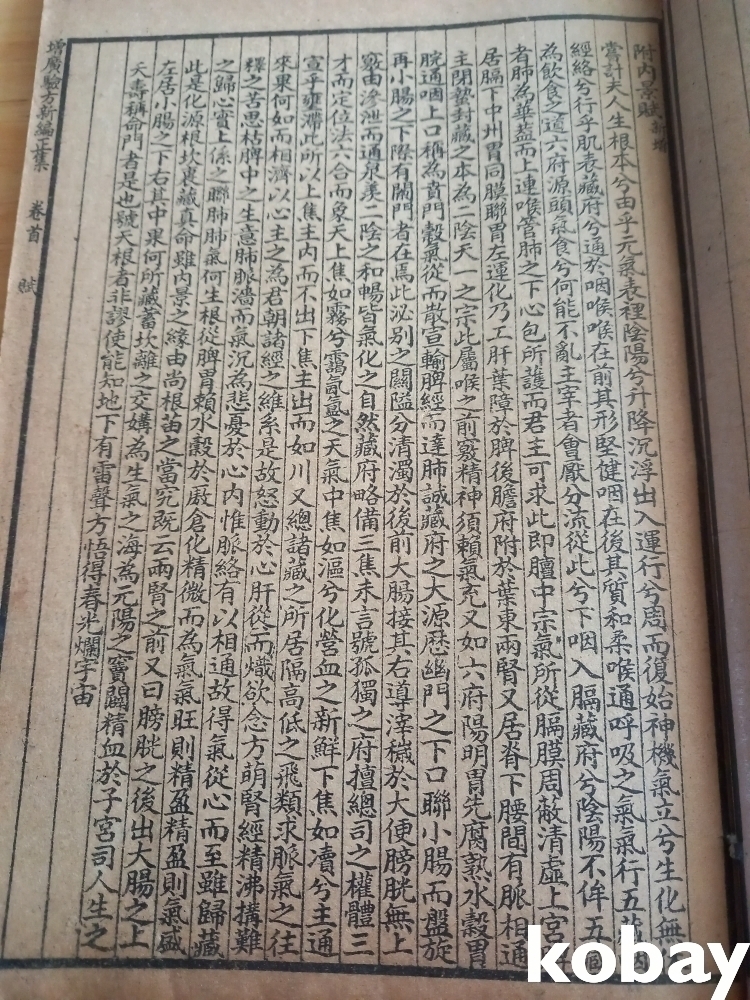 附內景賦 新增
嘗計夫人生根本兮由乎元氣表裡陰陽兮升降沉浮出入運行兮周而復始神機氣立兮生化無
經絡兮行乎肌表藏府兮通於咽喉喉在前其形堅健咽在後其質和柔喉通呼吸之氣氣行五藏
為飲食之道六府源頭氣食兮何能不亂主宰者會厭分流從此兮下咽入膈藏府兮陰陽不侔五
者肺為華蓋而上連喉管肺之下心包所護而君主可求此即膻中宗氣所從膈膜周蔽清虛上宮
居膈下中州胃同膜聯胃左運化乃工肝葉障於脾後膽府附於葉東兩腎又居脊下腰間有脈相通
主閉蟄封藏之本為二陰天一之宗此屬喉之前竅精神須賴氣充又如六府陽明胃先腐熟水穀胃
脘通咽上口稱為賁門穀氣從而散宣輸脾經而達肺誠藏府之大源歷幽門之下口聯小腸而盤旋
再小腸之下際有闌門者在焉此泌別之關隘分清濁於後前大腸接其右導滓穢於大便膀胱無上
竅由滲泄而通泉羨二陰之和暢皆氣化之自然藏府略備三焦未言號孤獨之府擅總司之權體三
才而定位法六合而象天上焦如霧兮靄氤氳之天氣中焦如漚兮化營血之新鮮下焦如瀆兮主通
宣乎壅滯此所以上焦主內而不出下焦主出而如川又總諸藏之所居隔高低之飛類求脈氣之往
來果何如而相濟以心主之為君朝諸經之維系是故怒動於心肝從而熾欲念方萌腎經精沸搆難
釋之苦思枯脾中之生意肺脈濇而氣沉為悲憂於心內惟脈絡有以相通故得氣從心而至雖歸藏
之歸心實上係之聯肺肺氣何生根從脾胃賴水穀於厫倉化精微而為氣氣旺則精盈精盈則氣盛
此是化源根坎裏藏真命雖內景之緣由尚根苗之當究既云兩腎之前又曰膀胱之後出大腸之上
左居小腸之下右其中果何所藏蓄坎離之交媾為生氣之海為元陽之竇闢精血於子宮司人生之
夭壽稱命門者是也號天根者非謬使能知地下有雷聲方悟得春光爛宇宙
增廣驗方新編正集 卷首 賦
kobay